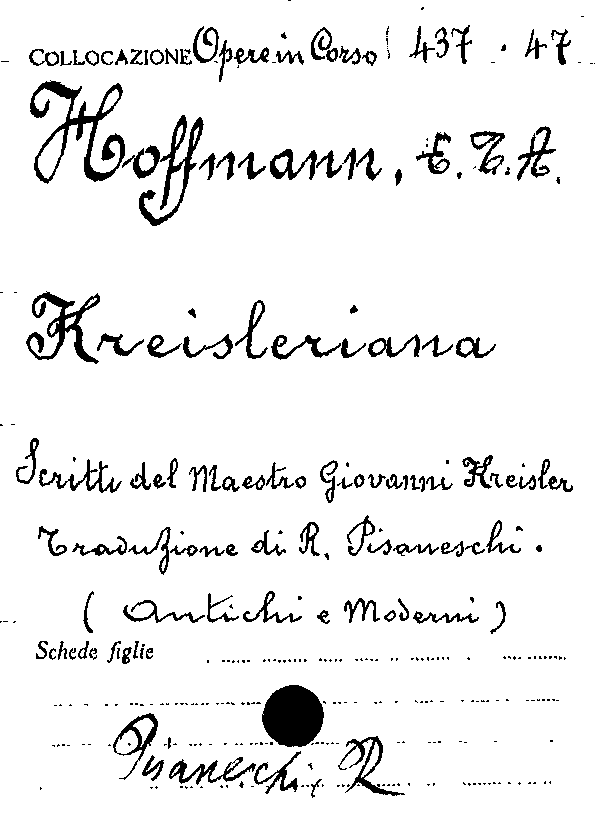 COLLOCAZIONE Opere in Corso 437 . 47
Hoffmann, E.T.A.
Kreisleriana
Scritti del Maestro Giovanni Kreisler
Traduzione di R. Pisaneschi.
( Antichi e Moderni )
Schede figlie
Pisaneschi, R